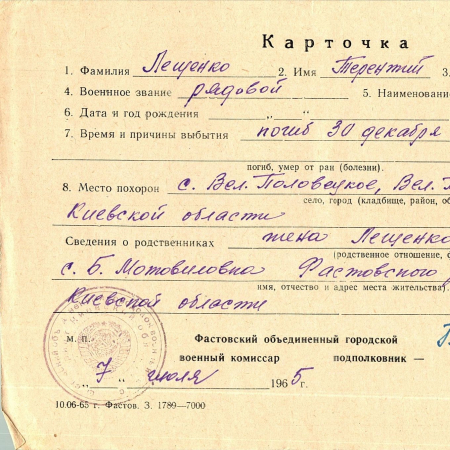 Карточка
1. Фамилия Лещенко 2. Имя Терентий 3.
4. Военное звание рядовой 5. Наименовани
6. Дата и год рождения " "
7. Время и причины выбытия погиб 30 декабря
погиб, умер от ран (болезни).
8. Место похорон с. Вел. Половецкое, Вел.
село, город (кладбище, район, об
Киевской области
Сведения о родственниках жена Лещенко
(родственное отношение, ф
с. Б. Мотовиловка Фастовского
имя, отчество и адрес места жительства).
Киевской области
М. П.
Фастовский объединенный городской
военный комиссар подполковник —
" 7 " июля 1965 г.
10.06-65 г. Фастов. З. 1789—7000